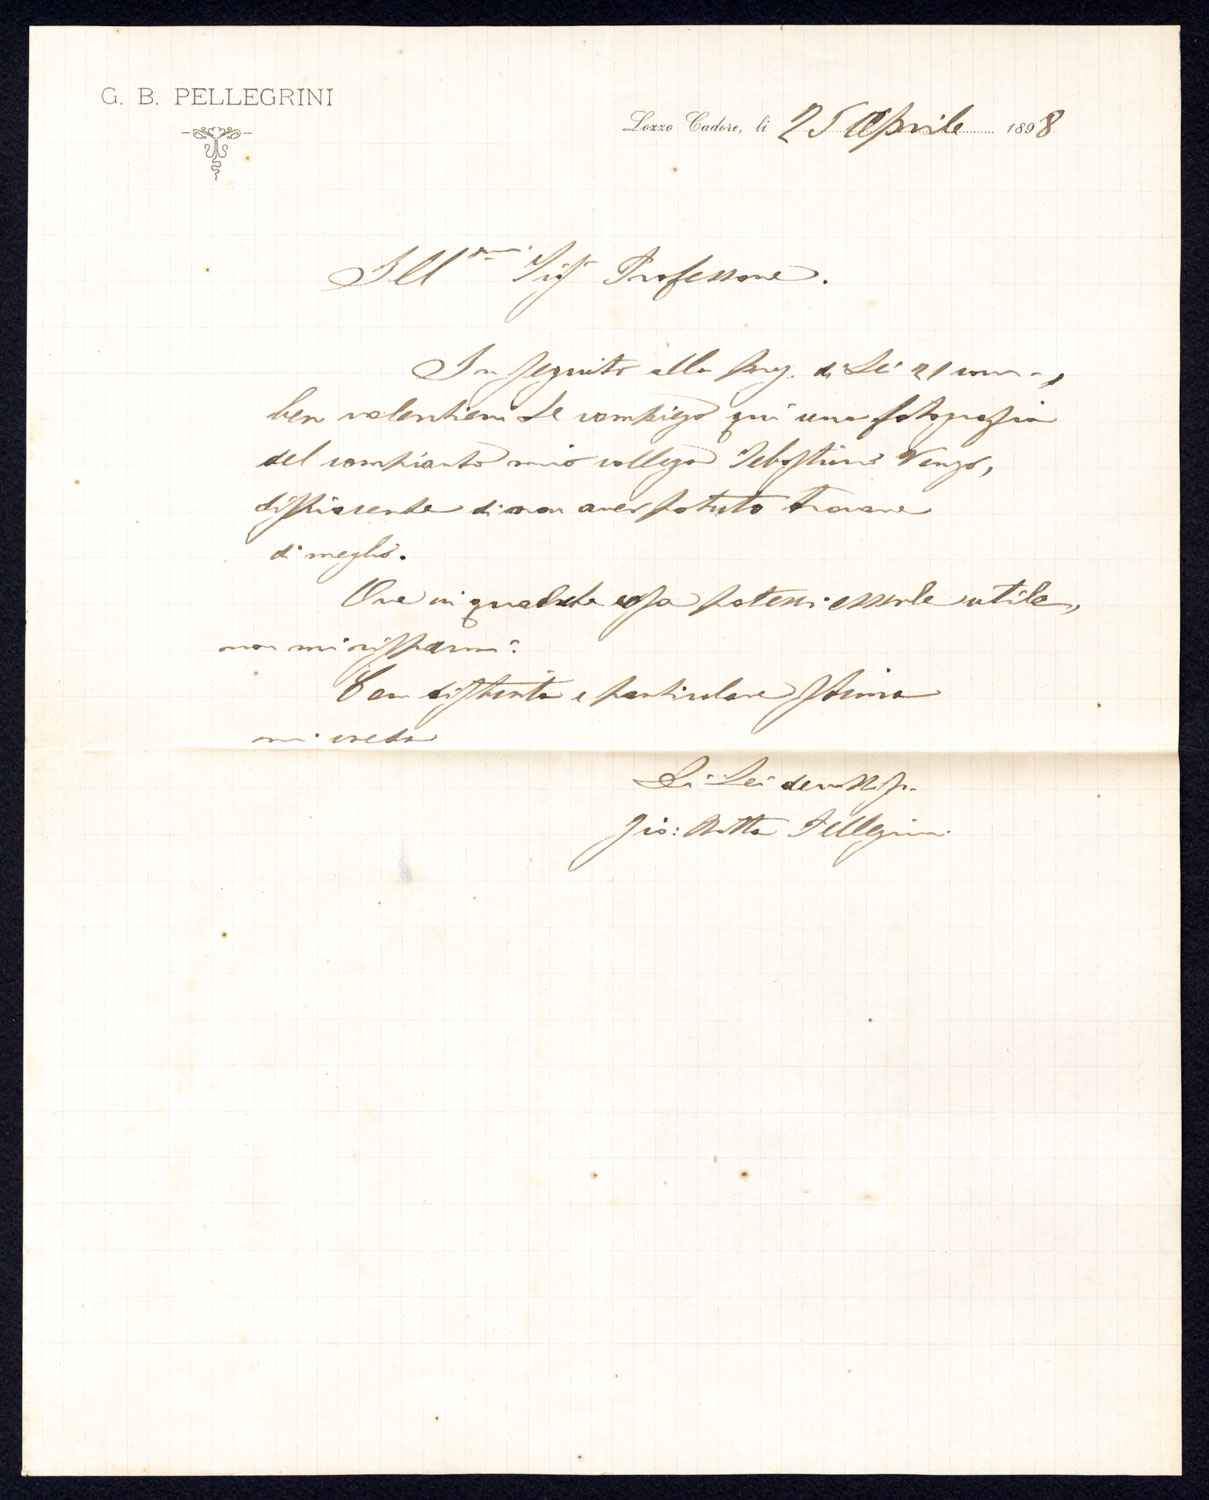 G. B. PELLEGRINI
Lozzo Cadore, li 25 Aprile 1898
Ill.mo Sigr Professore.
In seguito alla preg. di Lei 21
ben volentieri Le compiego qui una fotografia
del compianto mio collega Sebastiano
dispiacente di non aver potuto trovare
di meglio.
Ove in qualche cosa potessi esserle utile,
non mi risparmi.
Con distinta e particolare stima
mi creda
Di Lei
Gio: Batta Pellegrini.